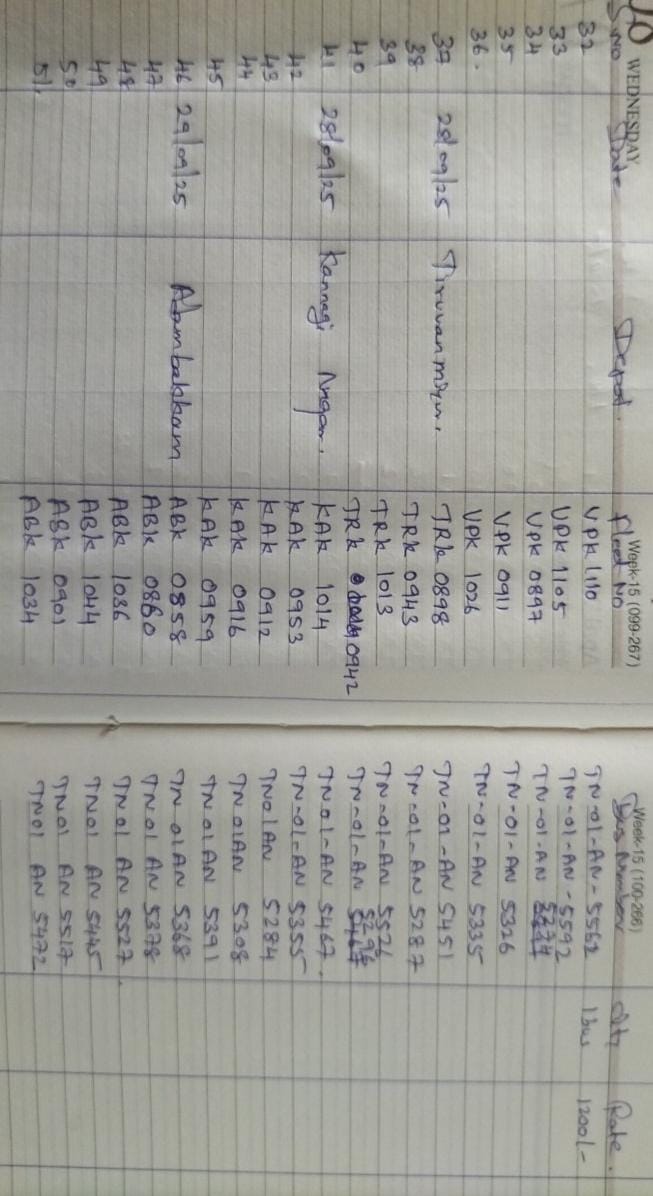 10 WEDNESDAY Week-15 (099-267) Week-15 (100-266)
S.No Date Depot. Fleet No Bus Number Qty Rate.
32 VPK 1110 TN-01-AN-5562 1bus 1200/-
33 VPK 1105 TN-01-AN-5592
34 VPK 0897 TN-01-AN 5274
35 VPK 0911 TN-01-AN 5326
36. VPK 1026 TN-01-AN 5335
37 28/09/25 Tiruvanmiyur. TRK 0898 TN-01-AN 5451
38 TRK 0943 TN-01-AN 5287
39 TRK 1013 TN-01-AN 5526
40 TRK 0942 TN-01-AN 5296
41 28/09/25 Kannagi Nagar. KAK 1014 TN01-AN 5467.
42 KAK 0953 TN-01-AN 5355
43 KAK 0912 TN01AN 5284
44 KAK 0916 TN 01AN 5308
45 KAK 0959 TN 01 AN 5391
46 29/09/25 Alambakkam ABK 0858 TN 01AN 5368
47 ABK 0860 TN 01 AN 5378
48 ABK 1036 TN01 AN 5527.
49 ABK 1044 TN01 AN 5445
50 ABK 0901 TN01 AN 5517
51. ABK 1034 TN01 AN 5472